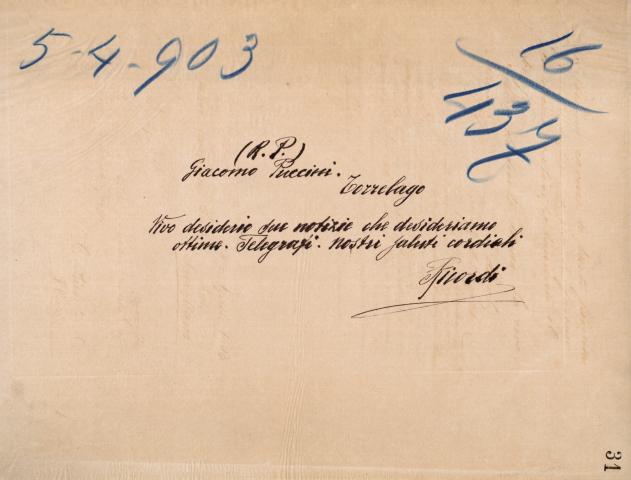 5-4-903
16/437
(R. P.)
Giacomo Puccini.
Torrelago
Vivo desiderio sue notizie che desideriamo
ottime. Telegrafi. Nostri saluti cordiali
Ricordi
31